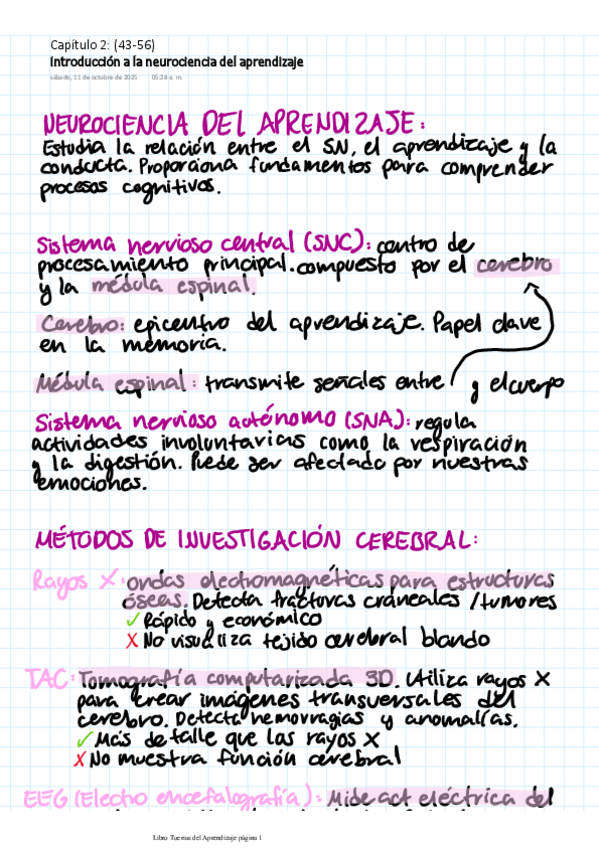 Capítulo 2: (43-56)
Introducción a la neurociencia del aprendizaje
sábado, 11 de octubre de 2025 05:28 a. m.
NEUROCIENCIA DEL APRENDIZAJE:
Estudia la relación entre el SN, el aprendizaje y la
conducta. Proporciona fundamentos para comprender
procesos cognitivos.
Sistema nervioso central (SNC): centro de
procesamiento principal. compuesto por el cerebro
y la médula espinal.
Cerebro: epicentro del aprendizaje. Papel clave
en la memoria.
Médula espinal: transmite señales entre y el cuerpo
Sistema nervioso autónomo (SNA): regula
actividades involuntarias como la respiración
y la digestión. Puede ser afectado por nuestras
emociones.
MÉTODOS DE INVESTIGACIÓN CEREBRAL:
Rayos X: ondas electromagnéticas para estructuras
óseas. Detecta fracturas craneales / tumores
✓ Rápido y económico
X No visualiza tejido cerebral blando
TAC: Tomografía computarizada 3D. Utiliza rayos X
para crear imágenes transversales del
cerebro. Detecta hemorragias y anomalías.
✓ Más detalle que los rayos X
X No muestra función cerebral
EEG (Electro encefalografía): Mide act eléctrica del
Libro Tuerias del Aprendizaje página 1